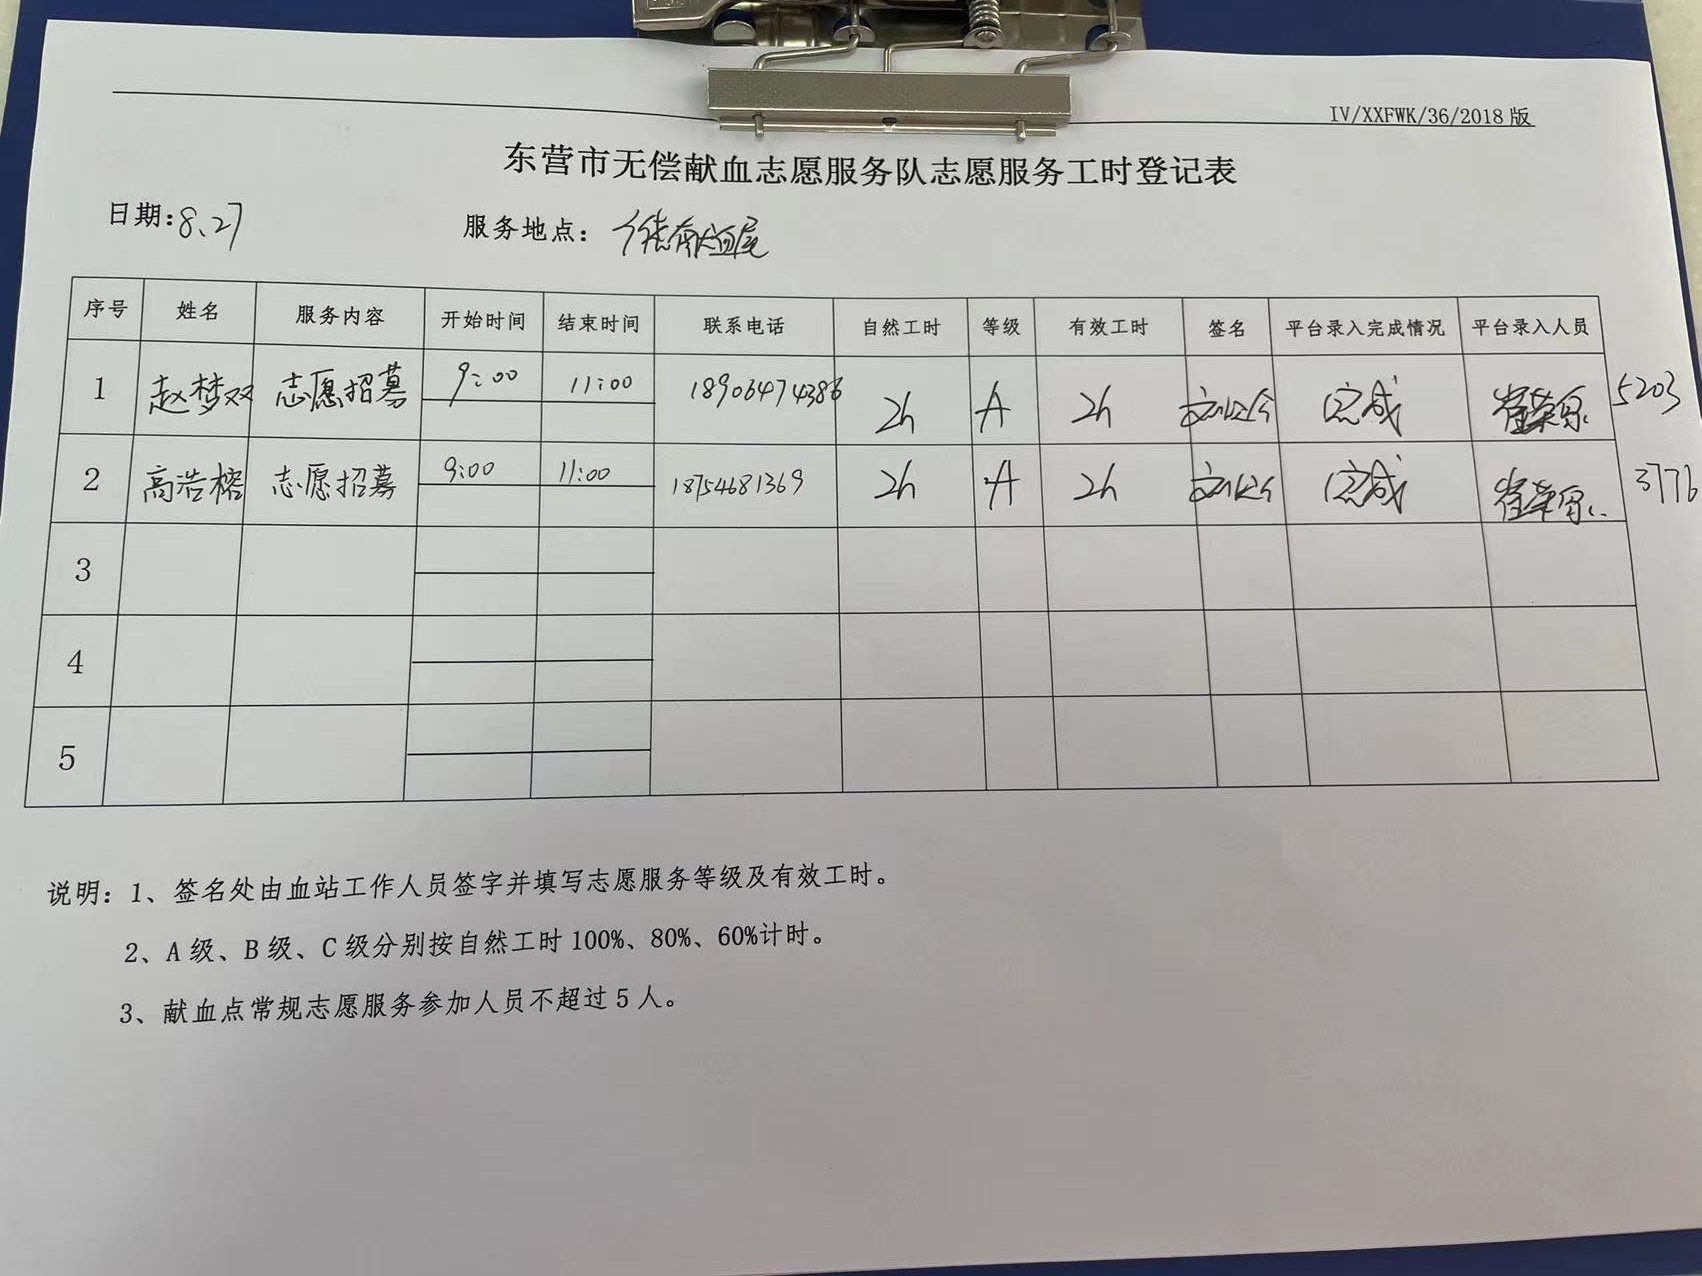 IV/XXFWK/36/2018版
东营市无偿献血志愿服务队志愿服务工时登记表
日期:8.27 服务地点: 献血屋
序号 姓名 服务内容 开始时间 结束时间 联系电话 自然工时 等级 有效工时 签名 平台录入完成情况 平台录入人员
1 赵梦双 志愿招募 9:00 11:00 18906474386 2h A 2h 完成 5203
2 高浩榕 志愿招募 9:00 11:00 18754681369 2h A 2h 完成 3776
3
4
5
说明: 1、签名处由血站工作人员签字并填写志愿服务等级及有效工时。
2、A级、B级、C级分别按自然工时100%、80%、60%计时。
3、献血点常规志愿服务参加人员不超过5人。